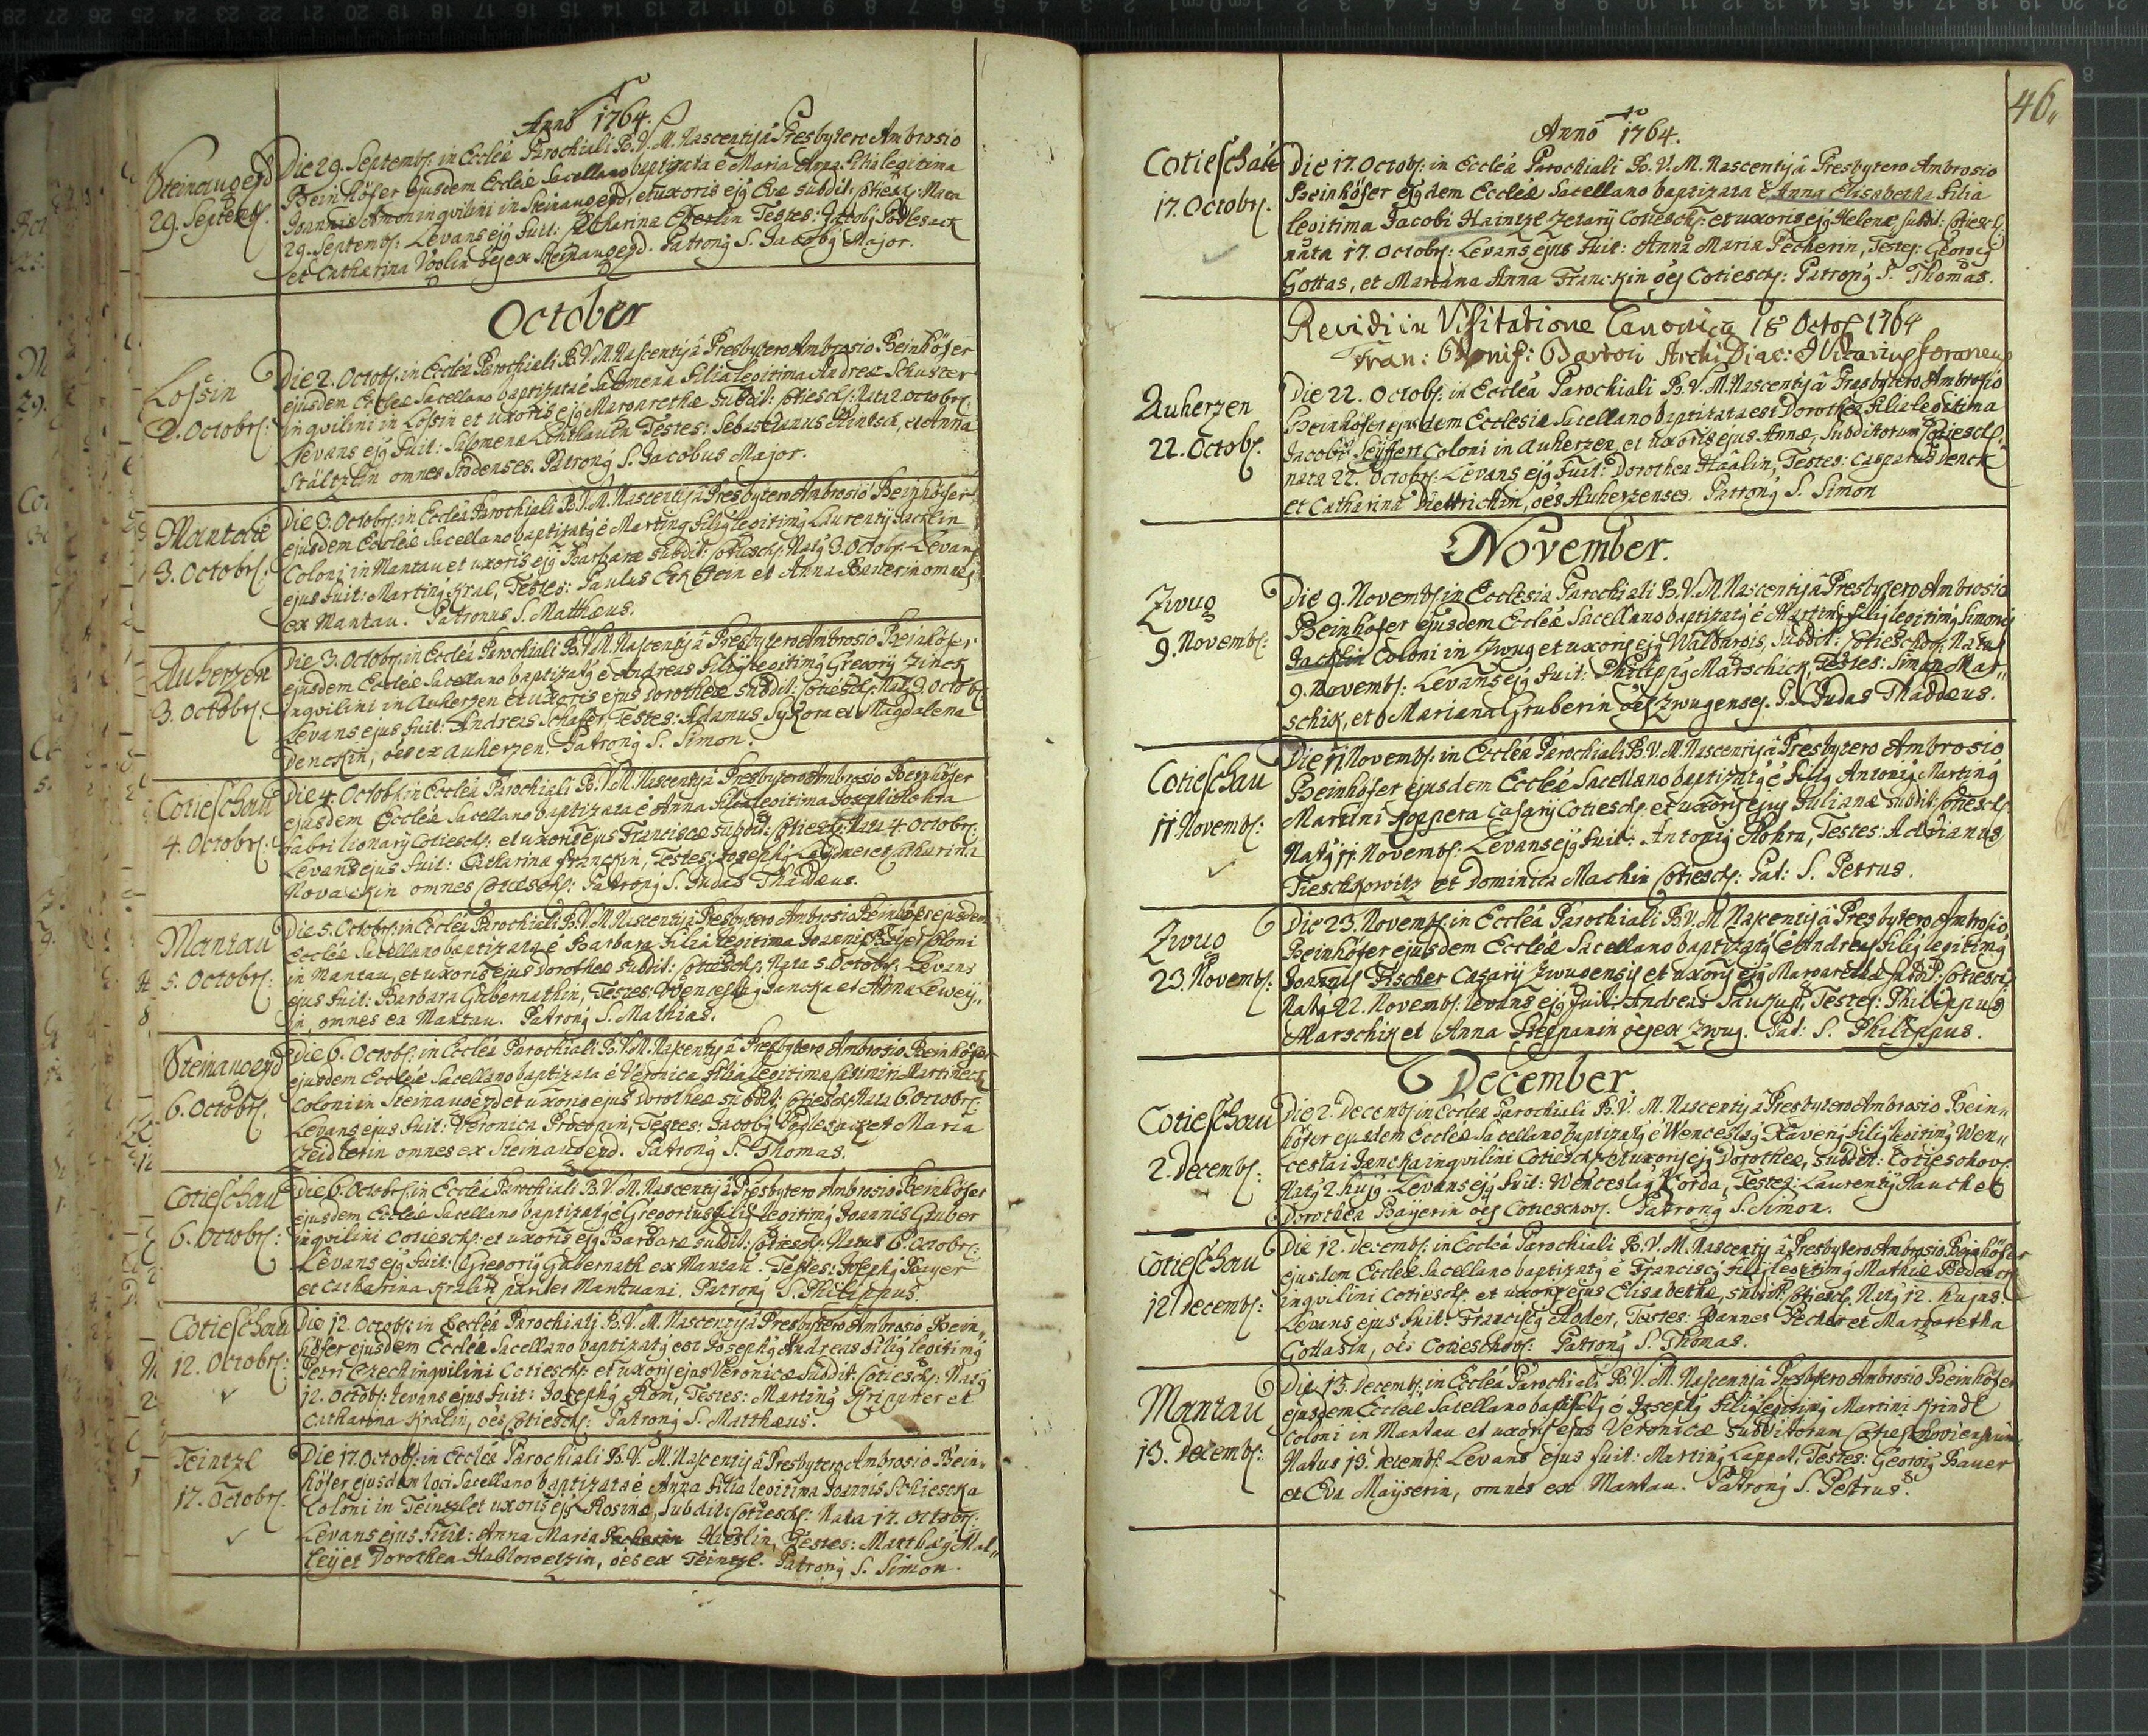 Anno 1764.
Steinaugezd
29. Septemb:
Die 29. Septemb: in Eccleâ Parochiali B.V.M. Nascentis â Presbytero Ambrosio
Beinhöfer ejusdem Eccleæ Sacellano baptizata ê Maria Anna Filia legitima
Joannis Amon inqvilini in Steinaugezd, et uxoris ejq Evæ subdit: Cotiesch: Nata
29. Septemb: Levans ejq fuit: Catharina Testes: Jacobq Podlesack
et Catharina oes ex Steinaugezd. Patronq S. Jacobq Major.
October
Lossin
2. Octobr:
Die 2. Octob: in Eccleâ Parochiali B.V.M. Nascentis â Presbytero Ambrosio Beinhöfer
ejusdem Eccleæ Sacellano baptizata ê Salomena Filia legitima Andreæ Schuster
inqvilini in Lossin et uxoris ejq Margarethæ subdit: Cotiesch: Nata 2. Octobr:
Levans ejq fuit: Salomena Testes: Sebastianus et Anna
omnes Patronq S. Jacobus Major.
Mantau
3. Octobr:
Die 3. Octobr: in Eccleâ Parochiali B.V.M. Nascentis â Presbytero Ambrosio Beinhöfer
ejusdem Eccleæ Sacellano baptizatq ê Martinq Filiq legitimq Laurentij Jacklin
Coloni in Mantau et uxoris ejq Barbaræ subdit: Cotiesch: Natq 3. Octob: Levans
ejus fuit: Martinq Kral, Testes: Paulus et Anna omnes
ex Mantau. Patronus S. Matthæus.
Auherzen
3. Octobr:
Die 3. Octobr: in Eccleâ Parochiali B.V.M. Nascentis â Presbytero Ambrosio Beinhöfer
ejusdem Eccleæ Sacellano baptizatq ê Andreas Filiq legitimq Gregorij Zinck
inqvilini in Auherzen et uxoris ejus Dorotheæ subdit: Cotiesch: Natq 3. Octob:
Levans ejus fuit: Andreas Schäfer, Testes: Adamus Sykora et Magdalena
Denckin, oes ex Auherzen. Patronq S. Simon.
Cotieschau
4. Octobr:
Die 4. Octob: in Eccleâ Parochiali B.V.M. Nascentis â Presbytero Ambrosio Beinhöfer
ejusdem Eccleæ Sacellano baptizata ê Anna Filia legitima Josephi Rohra
fabri lignarij Cotiesch: et uxoris ejus Franciscæ subdit: Cotiesch: Nata 4. Octobr:
Levans ejus fuit: Catharina Franckin, Testes: Josephq et Catharina
Novackin omnes Cotiesch: Patronq S. Judas Thadæus.
Mantau
5. Octobr:
Die 5. Octobr: in Eccleâ Parochiali B.V.M. Nascentis â Presbytero Ambrosio Beinhöfer ejusdem
Eccleæ Sacellano baptizata ê Barbara Filia legitima Joannis Bayer Coloni
in Mantau, et uxoris ejus Dorotheæ subdit: Cotiesch: Nata 5. Octobr: Levans
ejus fuit: Barbara Gubernathin, Testes: Wenceslaq Jancka et Anna Lewey„
in, omnes ex Mantau. Patronq S. Mathias.
Steinaugezd
6. Octobr:
Die 6. Octob: in Eccleâ Parochiali B.V.M. Nascentis â Presbytero Ambrosio Beinhöfer
ejusdem Eccleæ Sacellano baptizata ê Veronica Filia legitima Casimiri Martineck
Coloni in Steinaugezd et uxoris ejus Dorotheæ subdit: Cotiesch: Nata 6. Octobr:
Levans ejus fuit: Veronica Procopin, Testes: Jacobq Podlesack et Maria
Zeidlerin omnes ex Steinaugezd. Patronq S. Thomas.
Cotieschau
6. Octobr:
Die 6. Octobr: in Eccleâ Parochiali B.V.M. Nascentis â Presbytero Ambrosio Beinhöfer
ejusdem Eccleæ Sacellano baptizatq ê Gregorius Filiq legitimq Joannis Gruber
inqvilini Cotiesch: et uxoris ejq Barbaræ subdit: Cotiesch: Natus 6. Octobr:
Levans ejq fuit: Gregoriq Gubernath ex Mantau. Testes: Josephq Bayer
et Catharina Kralin pariter Mantuani. Patronq S. Philippus.
Cotieschau
12. Octobr:
Die 12. Octob: in Eccleâ Parochiali B.V.M. Nascentis â Presbytero Ambrosio Bein„
höfer ejusdem Eccleæ Sacellano baptizatq est Josephq Andreas Filiq legitimq
Petri Czech inqvilini Cotiesch: et uxoris ejus Veronicæ subdit: Cotiesch: Natq
12. Octob: Levans ejus fuit: Josephq Rom, Testes: Martinq et
Catharina Kralin, oes Cotiesch: Patronq S. Matthæus.
Teintzl
17. Octobr:
Die 17. Octob: in Eccleâ Parochiali B.V.M. Nascentis â Presbytero Ambrosio Bein„
höfer ejusdem loci Sacellano baptizata ê Anna Filia legitima Joannis Schiescka
Coloni in Teintzl et uxoris ejq Rosinæ, subdit: Cotiesch: Nata 17. Octobr:
Levans ejus fuit: Anna Maria Testes: Mathæq Mal„
leij et Dorothea Hablowetzin, oes ex Teintzl. Patronq S. Simon.
46.
Anno 1764.
Cotieschau
17. Octobr:
Die 17. Octob: in Eccleâ Parochiali B.V.M. Nascentis â Presbytero Ambrosio
Beinhöfer ejqdem Eccleæ Sacellano baptizata ê Anna Elisabetha Filia
legitima Jacobi Haintzl Cotiesch: et uxoris ejq Helenæ, subdit: Cotiesch:
nata 17. Octobr: Levans ejus fuit: Anna Maria Pecherin, Testes: Georgq
Gottas, et Mariana Anna Franckin oes Cotiesch: Patronq S. Thomas.
Revidi in Visitatione Canonica 18 Octob 1764
Fran: Bonif: Bartoň Archi Diac: & Vicarius foraneus
Auherzen
22. Octob:
Die 22. Octob: in Eccleâ Parochiali B.V.M. Nascentis â Presbytero Ambrosio
Beinhöfer ejusdem Ecclesiæ Sacellano baptizata est Dorothea Filia legitima
Jacobi Seyffert Coloni in Auherzen et uxoris ejus Annæ, Subditorum Cotiesch:
nata 22. Octobr: Levans ejq fuit: Dorothea Haälin, Testes: Casparus Denck
et Catharina Diettrichin, oes Auherzenses. Patronq S. Simon
November.
Zwug
9. Novemb:
Die 9. Novemb: in Ecclesia Parochiali B.V.M. Nascentis â Presbytero Ambrosio
Beinhöfer ejusdem Eccleæ Sacellano baptizatq ê Martinq Filiq legitimq Simonis
Jacklin Coloni in Zwug et uxoris ejq Walburgis, Subdit: Cotieschov: Natus
9. Novemb: Levans ejq fuit: Philippq Marschick, Testes: Simon Mar„
schik, et Mariana Gruberin oes Zwugenses. P. S. Judas Thaddæus.
Cotieschau
11. Novemb:
Die 11. Novemb: in Eccleâ Parochiali B.V.M. Nascentis â Presbytero Ambrosio
Beinhöfer ejusdem Eccleæ Sacellano baptizatq ê Filiq Antoniq Martinq
Martini Poppera Casarij Cotiesch: et uxoris ejus Julianæ subdit: Cotiesch:
Natq 11. Novemb: Levans ejq fuit: Antoniq Rohra, Testes: Adrianus
Tieschkowitz et Dominica Machin Cotiesch: Pat: S. Petrus.
Zwug
23. Novemb:
Die 23. Novemb: in Eccleâ Parochiali B.V.M. Nascentis â Presbytero Ambrosio
Beinhöfer ejusdem Eccleæ Sacellano baptizatq ê Andreas Filiq legitimq
Joannis Fischer Casarij Zwugensis et uxoris ejq Margarethæ subdit: Cotiesch:
Natq 22. Novemb: Levans ejq fuit: Andreas Testes: Philippus
Marschik et Anna Stepanin oes ex Zwug. Pat: S. Philippus.
December.
Cotieschau
2. Decemb:
Die 2. Decemb: in Eccleâ Parochiali B.V.M. Nascentis â Presbytero Ambrosio Bein„
höfer ejusdem Eccleæ Sacellano baptizatq ê Wenceslaq Xaveriq Filiq legitimq Wen„
ceslai Jancka inqvilini Cotiesch: et uxoris ejq Dorotheæ, subdit: Cotieschov:
Natq 2. hujq. Levans ejq fuit: Wenceslaq Korda, Testes: Laurentiq Rauch et
Dorothea Bayerin oes Cotieschov: Patronq S. Simon.
Cotieschau
12. Decemb:
Die 12. Decemb: in Eccleâ Parochiali B.V.M. Nascentis â Presbytero Ambrosio Beinhöfer
ejusdem Eccleæ Sacellano baptizatq ê Franciscq Filiq legitimq Mathiæ
inqvilini Cotiesch: et uxoris ejus Elisabethæ, subdit: Cotiesch: Natq 12. hujus.
Levans ejus fuit: Franciscq Roder, Testes: Joannes Pecher et Margaretha
Gottasin, oes Cotieschov: Patronq S. Thomas.
Mantau
13. Decemb:
Die 13. Decemb: in Eccleâ Parochiali B.V.M. Nascentis â Presbytero Ambrosio Beinhöfer
ejusdem Eccleæ Sacellano baptizatq ê Josephq Filiq legitimq Martini Krindl
Coloni in Mantau et uxoris ejus Veronicæ subditorum Cotieschoviensium
Natus 13. Decemb: Levans ejus fuit: Martinq Lappat, Testes: Georgiq Bauer
et Eva Mayserin, omnes ex Mantau. Patronq S. Petrus.